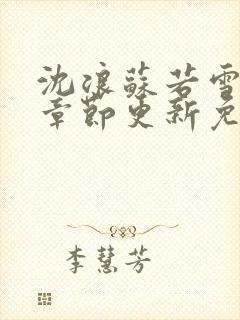 沈浪苏若雪
章节更新免
李慧芳